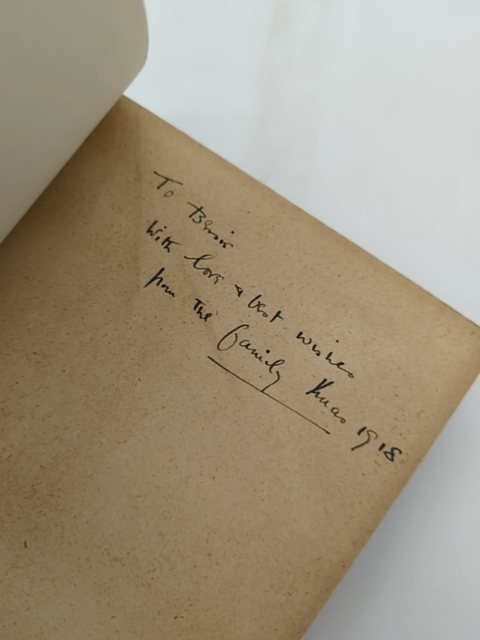 To Bessie
With love & best wishes
from the family Xmas 1918